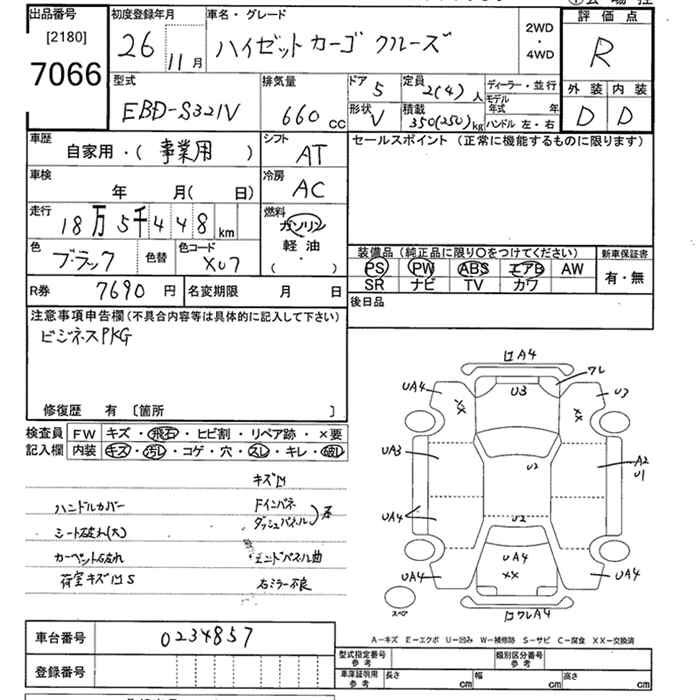 出品番号
[2180]
7066
初度登録年月
26 11月
車名・グレード
ハイゼットカーゴ クルーズ
2WD
・
4WD
評価点
R
外装 内装
D D
型式
EBD-S321V
排気量
660 CC
ドア 5
定員 2(4)人
形状 V
積載 350(250)kg
ディーラー・並行
モデル年式 年
ハンドル 左・右
車歴
自家用・(事業用)
シフト
AT
車検
年 月( 日)
冷房
AC
走行
18万5千448km
燃料
ガソリン
軽油
( ・ )
色
ブラック
色替
色コード
X07
R券 7690円
名変期限 月 日
セールスポイント (正常に機能するものに限ります)
装備品 (純正品に限り〇をつけてください)
PS PW ABS エアB AW
SR ナビ TV カワ
新車保証書
有・無
後日品
注意事項申告欄(不具合内容等は具体的に記入して下さい)
ビジネスPKG
修復歴 有 〔箇所 〕
検査員 FW キズ・飛石・ヒビ割・リペア跡・×要
記入欄 内装 キズ・汚レ・コゲ・穴・スレ・キレ・破レ
キズ凹
ハンドルカバー
Fインパネ
ダッシュパネル
シート破れ(大)
カーペット破れ
エンドパネル曲
荷室キズ凹S
右ミラー不良
ロA4
ワレ
UA4
U3
U3
XX
XX
UA3
U2
A2
U1
UA4
U2
UA4
XX
UA4
UA4
スペア
ロワレA4
A-キズ E-エクボ U-凹み W-補修跡 S-サビ C-腐食 XX-交換済
車台番号
0234857
登録番号
型式指定番号
参考
類別区分番号
参考
車庫証明用
参考
長さ cm
幅 cm
高さ cm